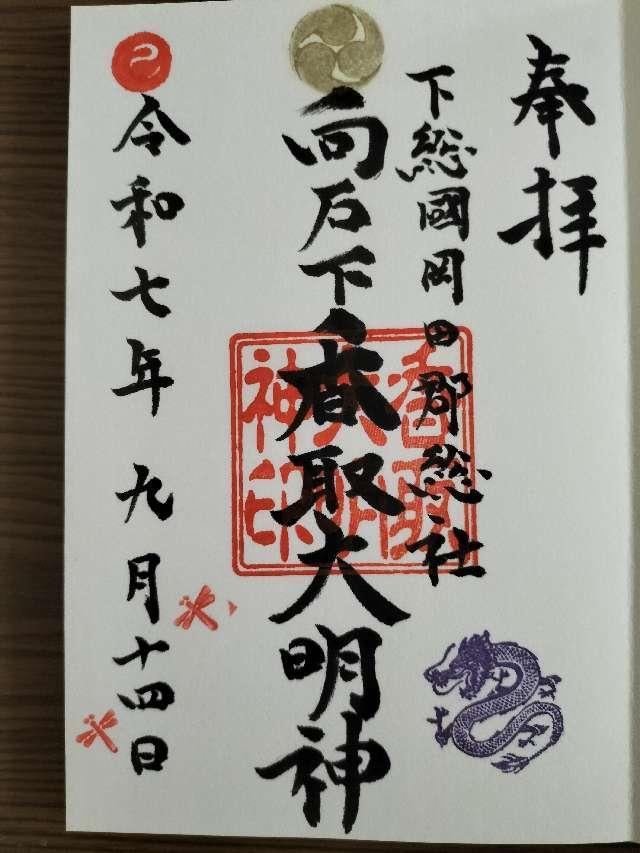 奉拝
下総國岡田郡総社
向石下香取大明神
香取大明神印
令和七年九月十四日